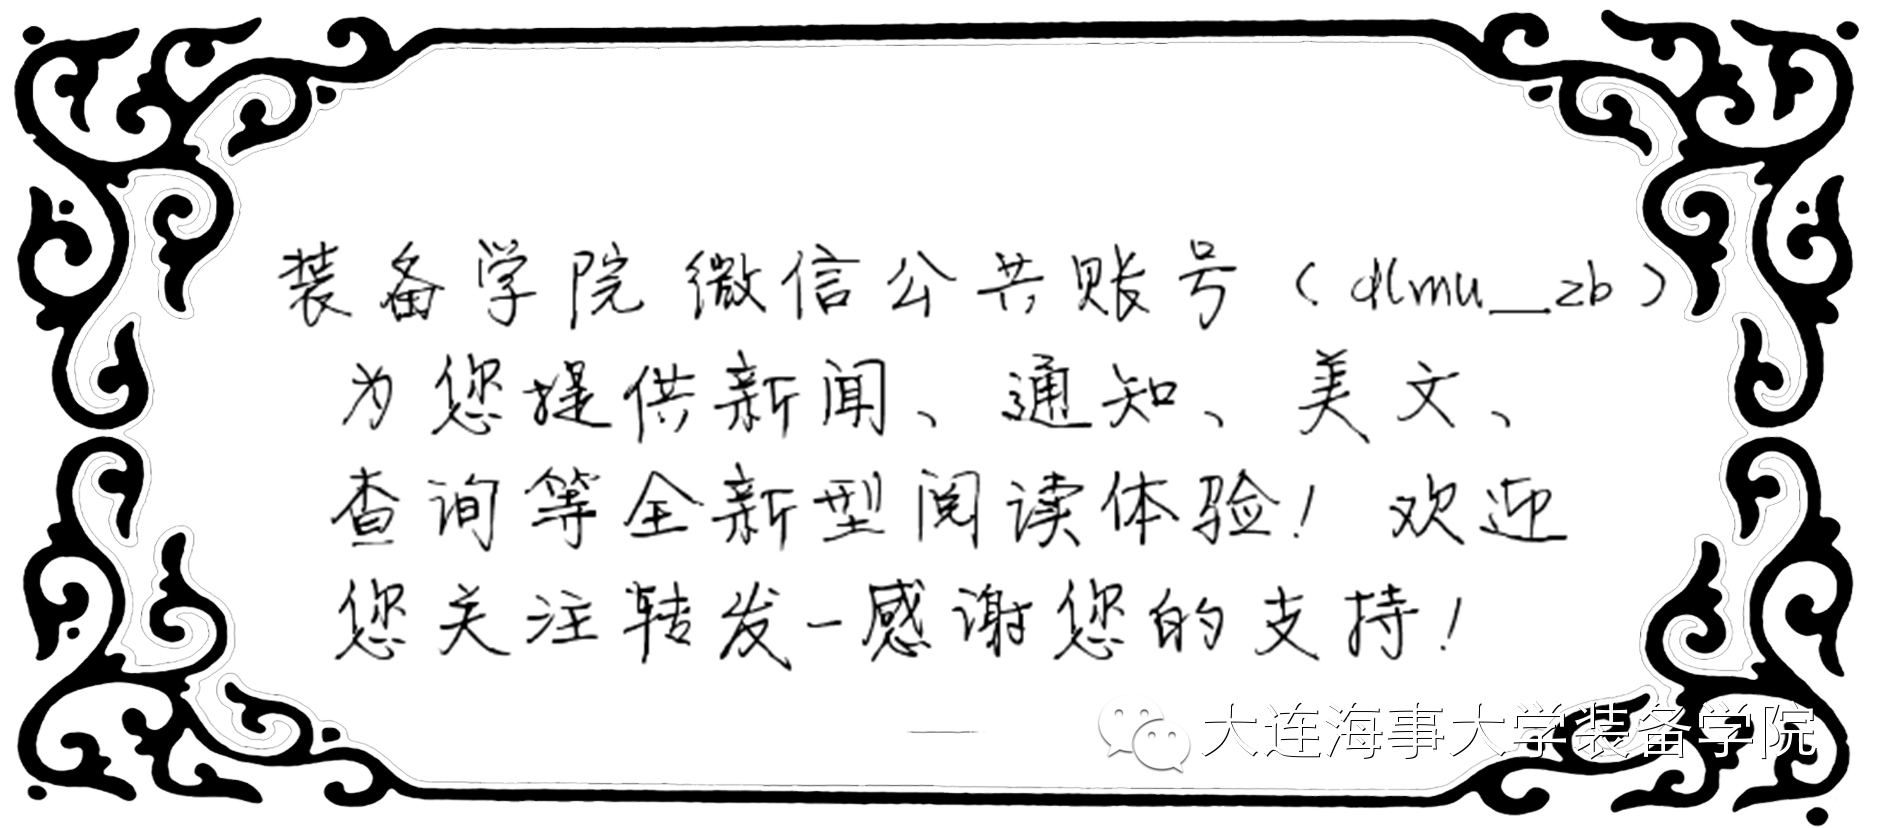 装备学院微信公共账号（dlmu_zb）
为您提供新闻、通知、美文、
查询等全新型阅读体验！欢迎
您关注转发-感谢您的支持！
大连海事大学装备学院